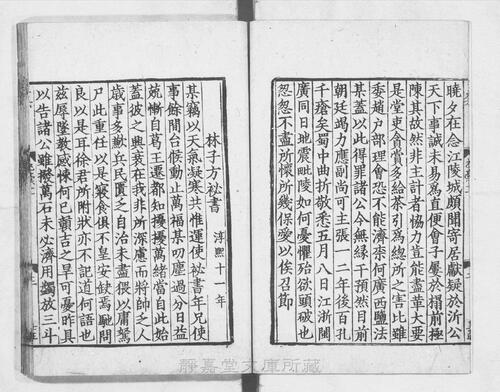 曉夕在念江陵城頗聞寄居獻疑於沂公
天下事誠未易爲直便會子屢於榻前極
陳其故然非主計者協力豈能盡革大要
是堂吏貪賞多給茶引爲總所之害比雖
委趙户部理會恐不能濟柰何廣西鹽法
某蓋以此得罪諸公今無緣干預然目前
朝廷竭力應副尚可主張一二年後百孔
千瘡矣蜀中曲折敬悉五月八日江浙閩
廣同日地震毗陵如何憂懼殆欲頭破也
怱怱不盡所懷所幾保愛以俟召節
林子方秘書 淳熙十一年
某竊以天氣凝寒共惟運使秘書年兄使
事餘閒台候動止萬福某叨塵過分日益
兢慚自葛王還都知擾擾萬緒當自此始
蓋彼之興衰在我非所深慮而將帥之人
歲事多歉兵民匱乏自治未盡猥以庸駑
尸此重任以是寢食俱不皇安妓焉馳問
良以是耳徐君所附狀亦不記道何語也
兹辱墜教感悚何已贑吉之旱可憂昨具
以告諸公雖撥萬石未必濟用蠲放三斗
靜嘉堂文庫所藏